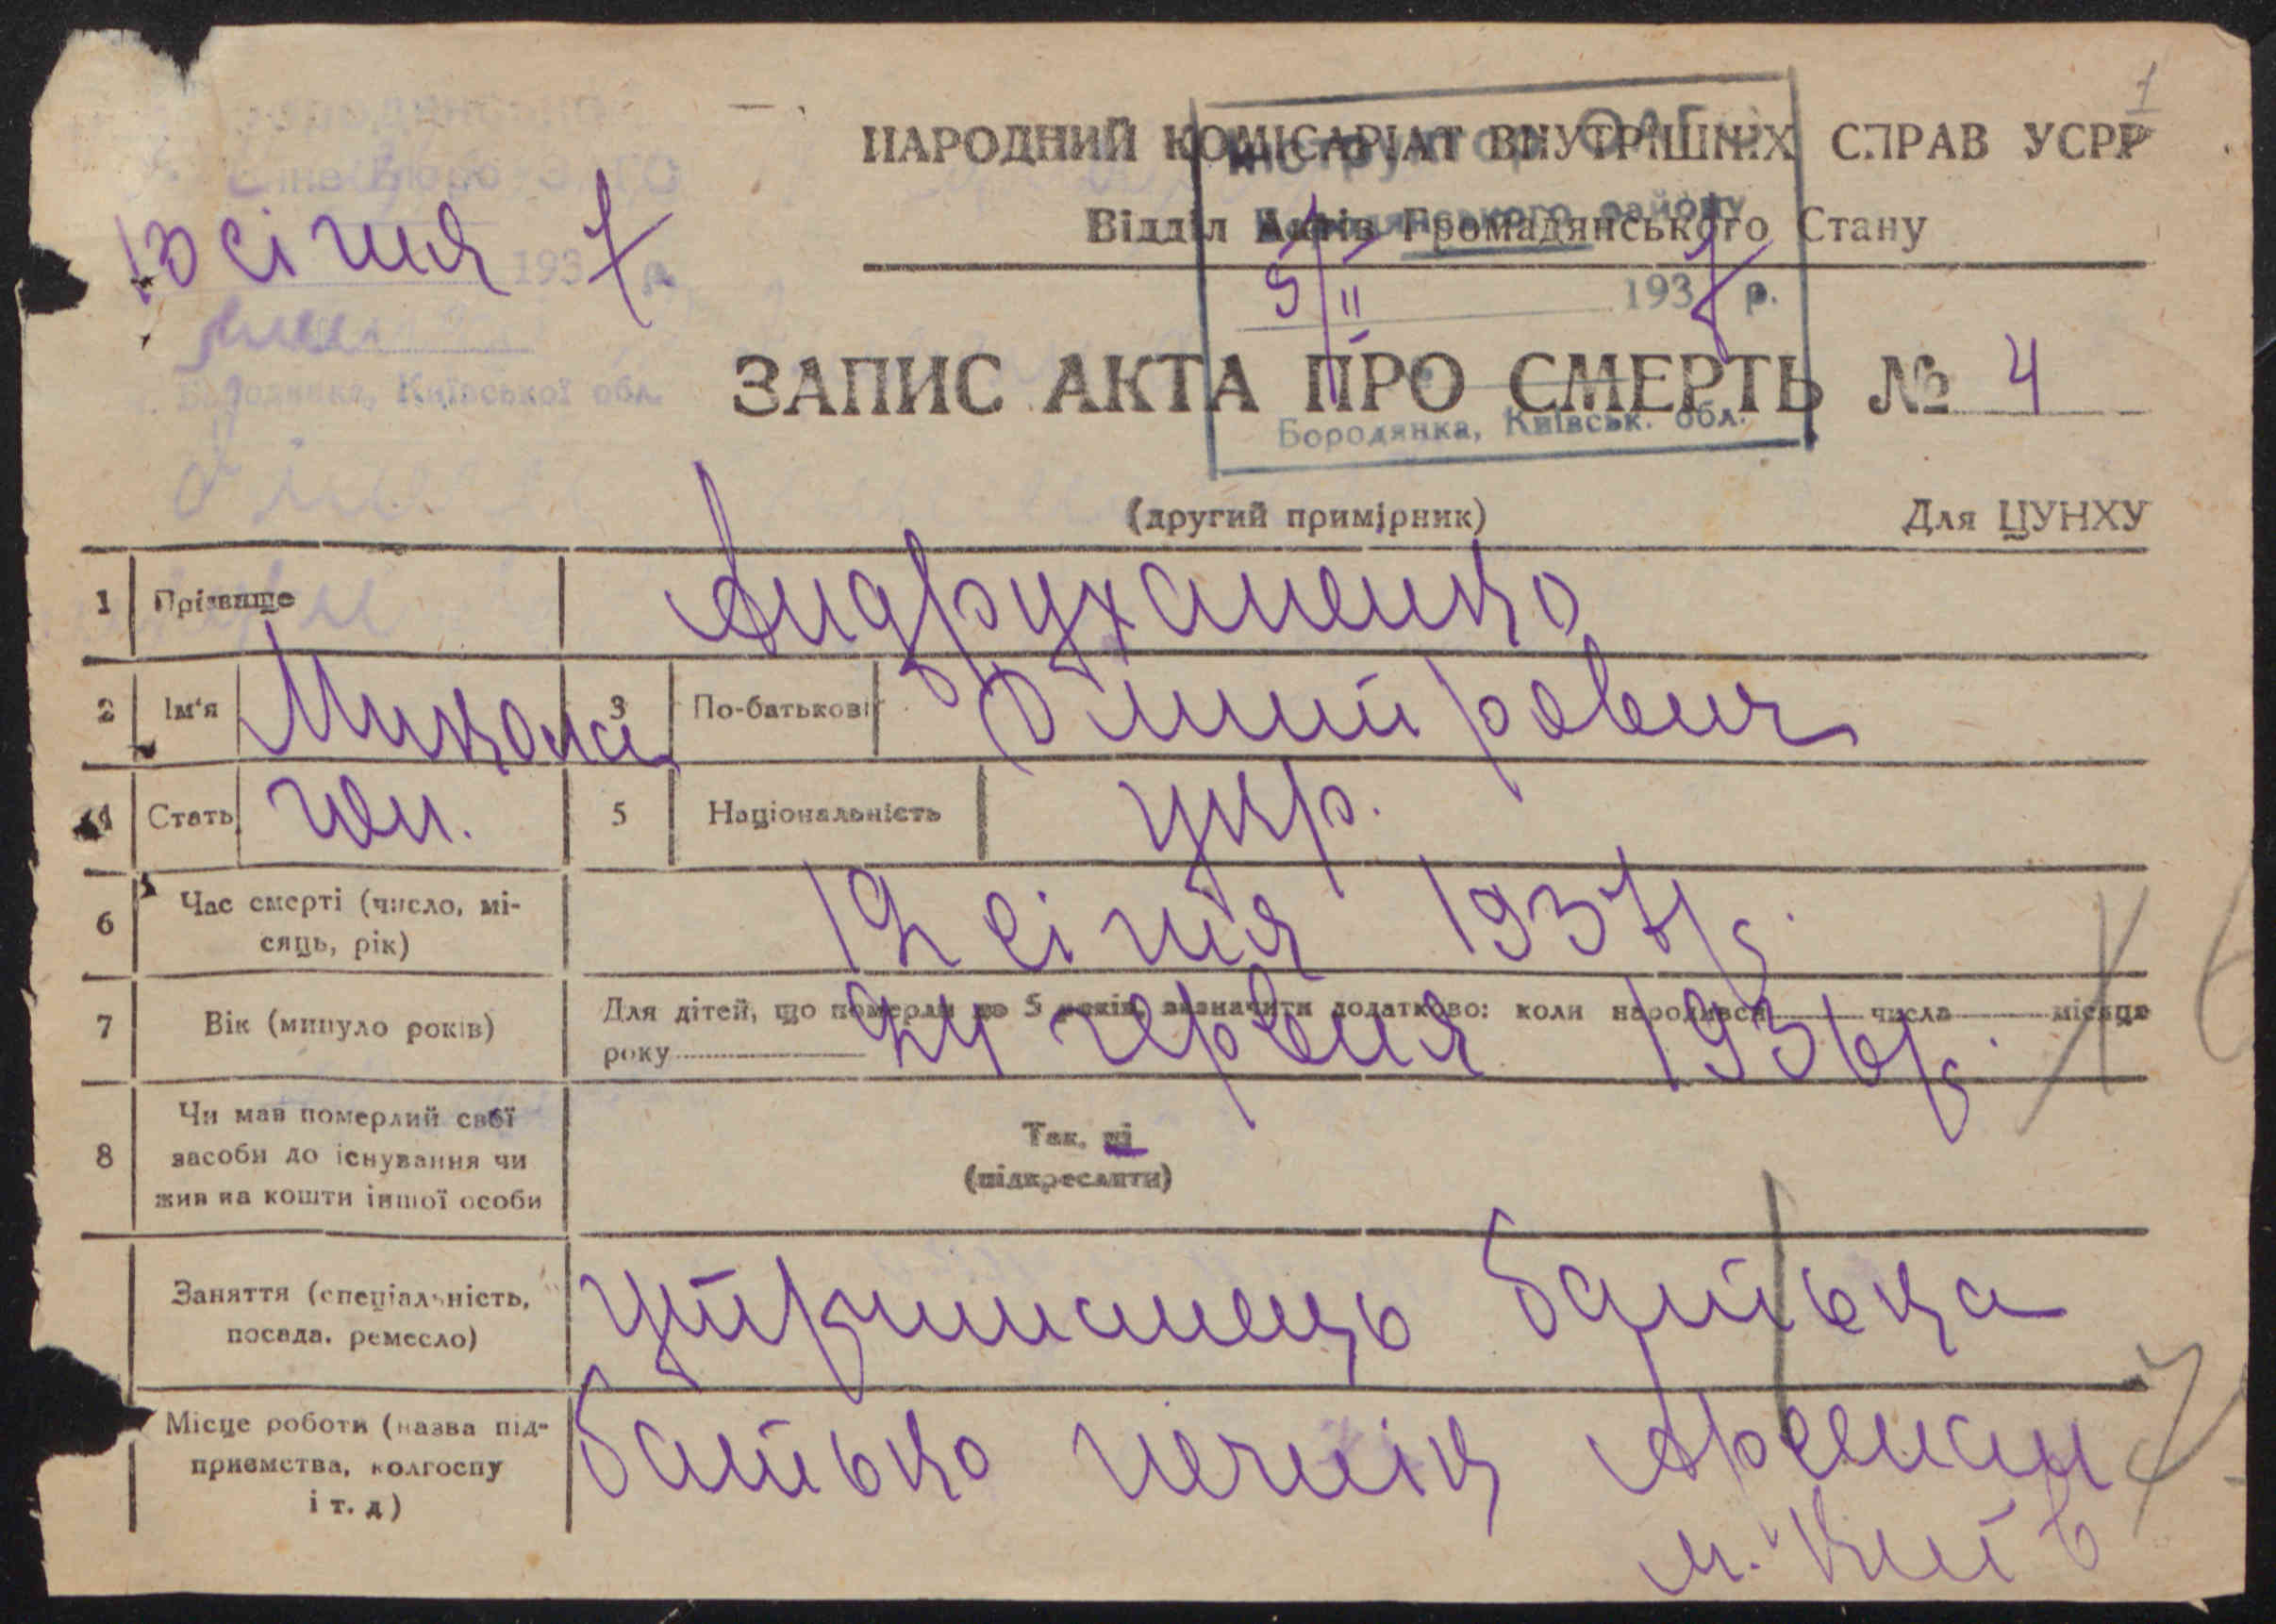 1
НАРОДНИЙ КОМІСАРІАТ ВНУТРІШНІХ СПРАВ УСРР
Відділ Актів Громадянського Стану
Бюро ЗАГС
13 січня 1937 р.
Бородянка, Київської обл.
Інструктор ОАГС
Бородянського району
5/II 1937 р.
Бородянка, Київськ. обл.
ЗАПИС АКТА ПРО СМЕРТЬ № 4
(другий примірник) Для ЦУНХУ
1 Прізвище Андруханенко
2 Ім'я Микола 3 По-батькові Дмитрович
4 Стать чол. 5 Національність укр.
6 Час смерті (число, мі-
сяць, рік) 12 січня 1937 р.
7 Вік (минуло років) Для дітей, що померли до 5 років, зазначити додатково: коли народився числа місяця
року 24 червня 1936 р.
8 Чи мав померлий свої
засоби до існування чи
жив на кошти іншої особи
Так, ні
(підкреслити)
Заняття (спеціальність,
посада, ремесло) утриманець батька
Місце роботи (назва під-
приємства, колгоспу
і т. д) батько пічнік Арсенал
м. Київ